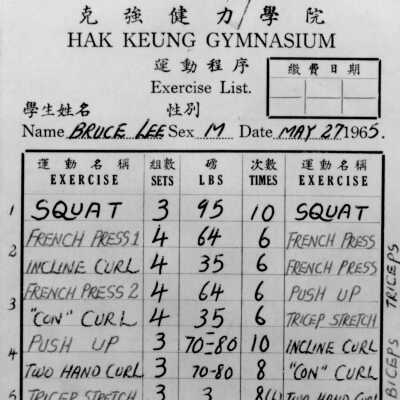 克強健力學院
HAK KEUNG GYMNASIUM
運動程序
繳費日期
Exercise List.
學生姓名 性別
Name BRUCE LEE Sex M Date MAY 27 1965.
運動名稱 組數 磅 次數 運動名稱
EXERCISE SETS LBS TIMES EXERCISE
1 SQUAT 3 95 10 SQUAT
2 FRENCH PRESS 1 4 64 6 FRENCH PRESS
INCLINE CURL 4 35 6 FRENCH PRESS
3 FRENCH PRESS 2 4 64 6 PUSH UP
"CON" CURL 4 35 6 TRICEP STRETCH
4 PUSH UP 3 70-80 10 INCLINE CURL
TWO HAND CURL 3 70-80 8 "CON" CURL
5 TRICEP STRETCH 3 3 8(6) TWO HAND CURL
TRICEPS
BICEPS